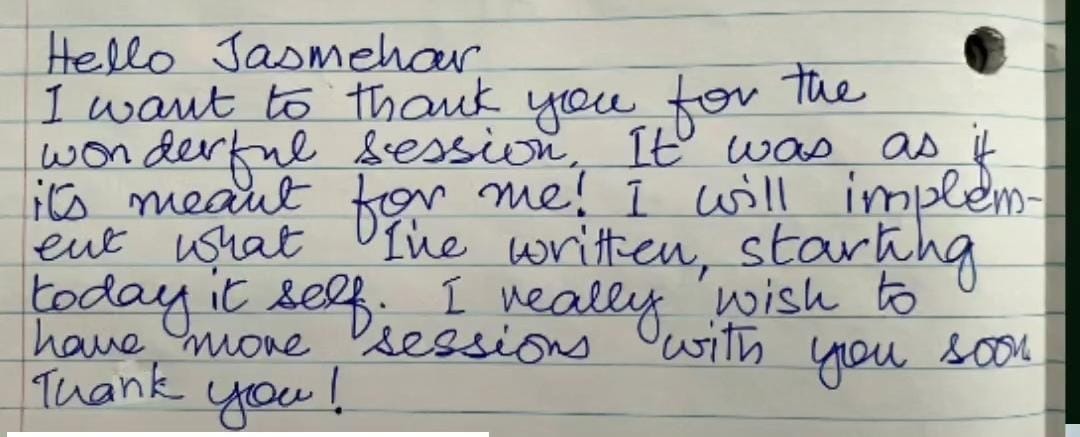 Hello Jasmehar
I want to thank you for the
wonderful session. It was as if
it's meant for me! I will implem-
ent what I've written, starting
today it self. I really wish to
have more sessions with you soon
Thank you!